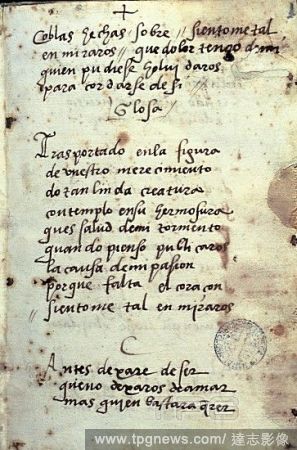 Coblas hechas sobre // sientome tal
en miraros // que dolor tengo de mi
quien pudiese holvidaros
para cordarse de si
Glosa
Trasportado en la figura
de vuestro merecimiento
do tan linda creatura
contemplo en su hermosura
ques salud de mi tormento
quando pienso publicaros
la causa de mi pasion
porque falta el coraçon
sientome tal en miraros
Antes dexare de ser
que no dexaros de amar
mas quien bastara
www.tpgnews.com/ 達志影像